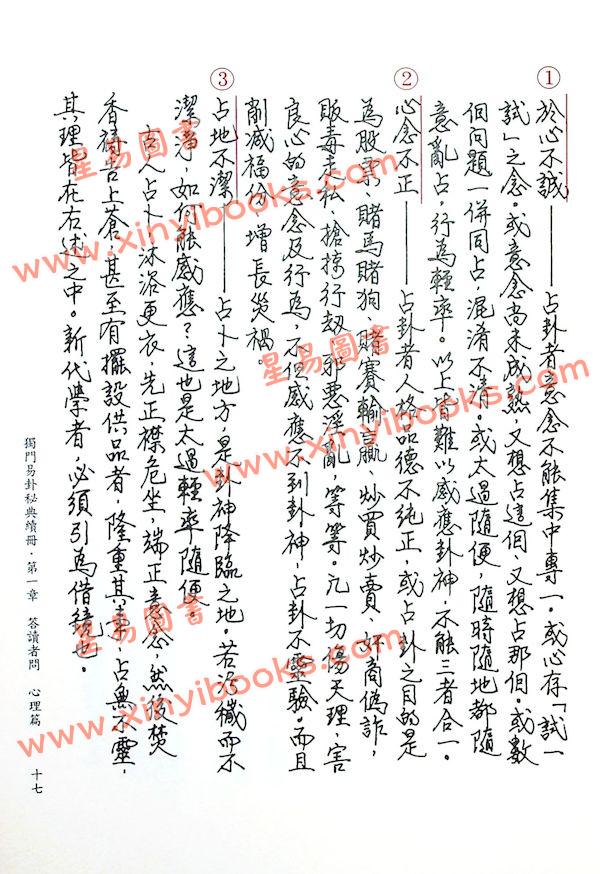 ①
於心不誠——占卦者意念不能集中專一。或心存「試一
試」之念。或意念尚未成熟，又想占這個、又想占那個。或數
個問題一併同占，混淆不清。或太過隨便，隨時隨地都隨
意亂占，行為輕率。以上皆難以感應卦神，不能三者合一。
②
心念不正——占卦者人格品德不純正，或占卦之目的是
為股票、賭馬賭狗、賭賽輸贏、炒買炒賣、奸商偽詐，
販毒走私、搶掠行劫、邪惡淫亂，等等。凡一切傷天理，害
良心的意念及行為，不但感應不到卦神，占卦不靈驗。而且
削減福份，增長災禍。
③
占地不潔——占卜之地方，是卦神降臨之地。若污穢而不
潔淨，如何能感應？這也是太過輕率隨便。
古人占卜，沐浴更衣，先正襟危坐，端正意念，然後焚
香禱告上蒼，甚至有擺設供品者，隆重其事，占無不靈，
其理皆在右述之中。新代學者，必須引為借鏡也。
獨門易卦秘典續冊・第一章 答讀者問 心理篇 十七
星易圖書
www.xinyibooks.com
星易圖書
www.xinyibooks.com
星易圖書
www.xinyibooks.com